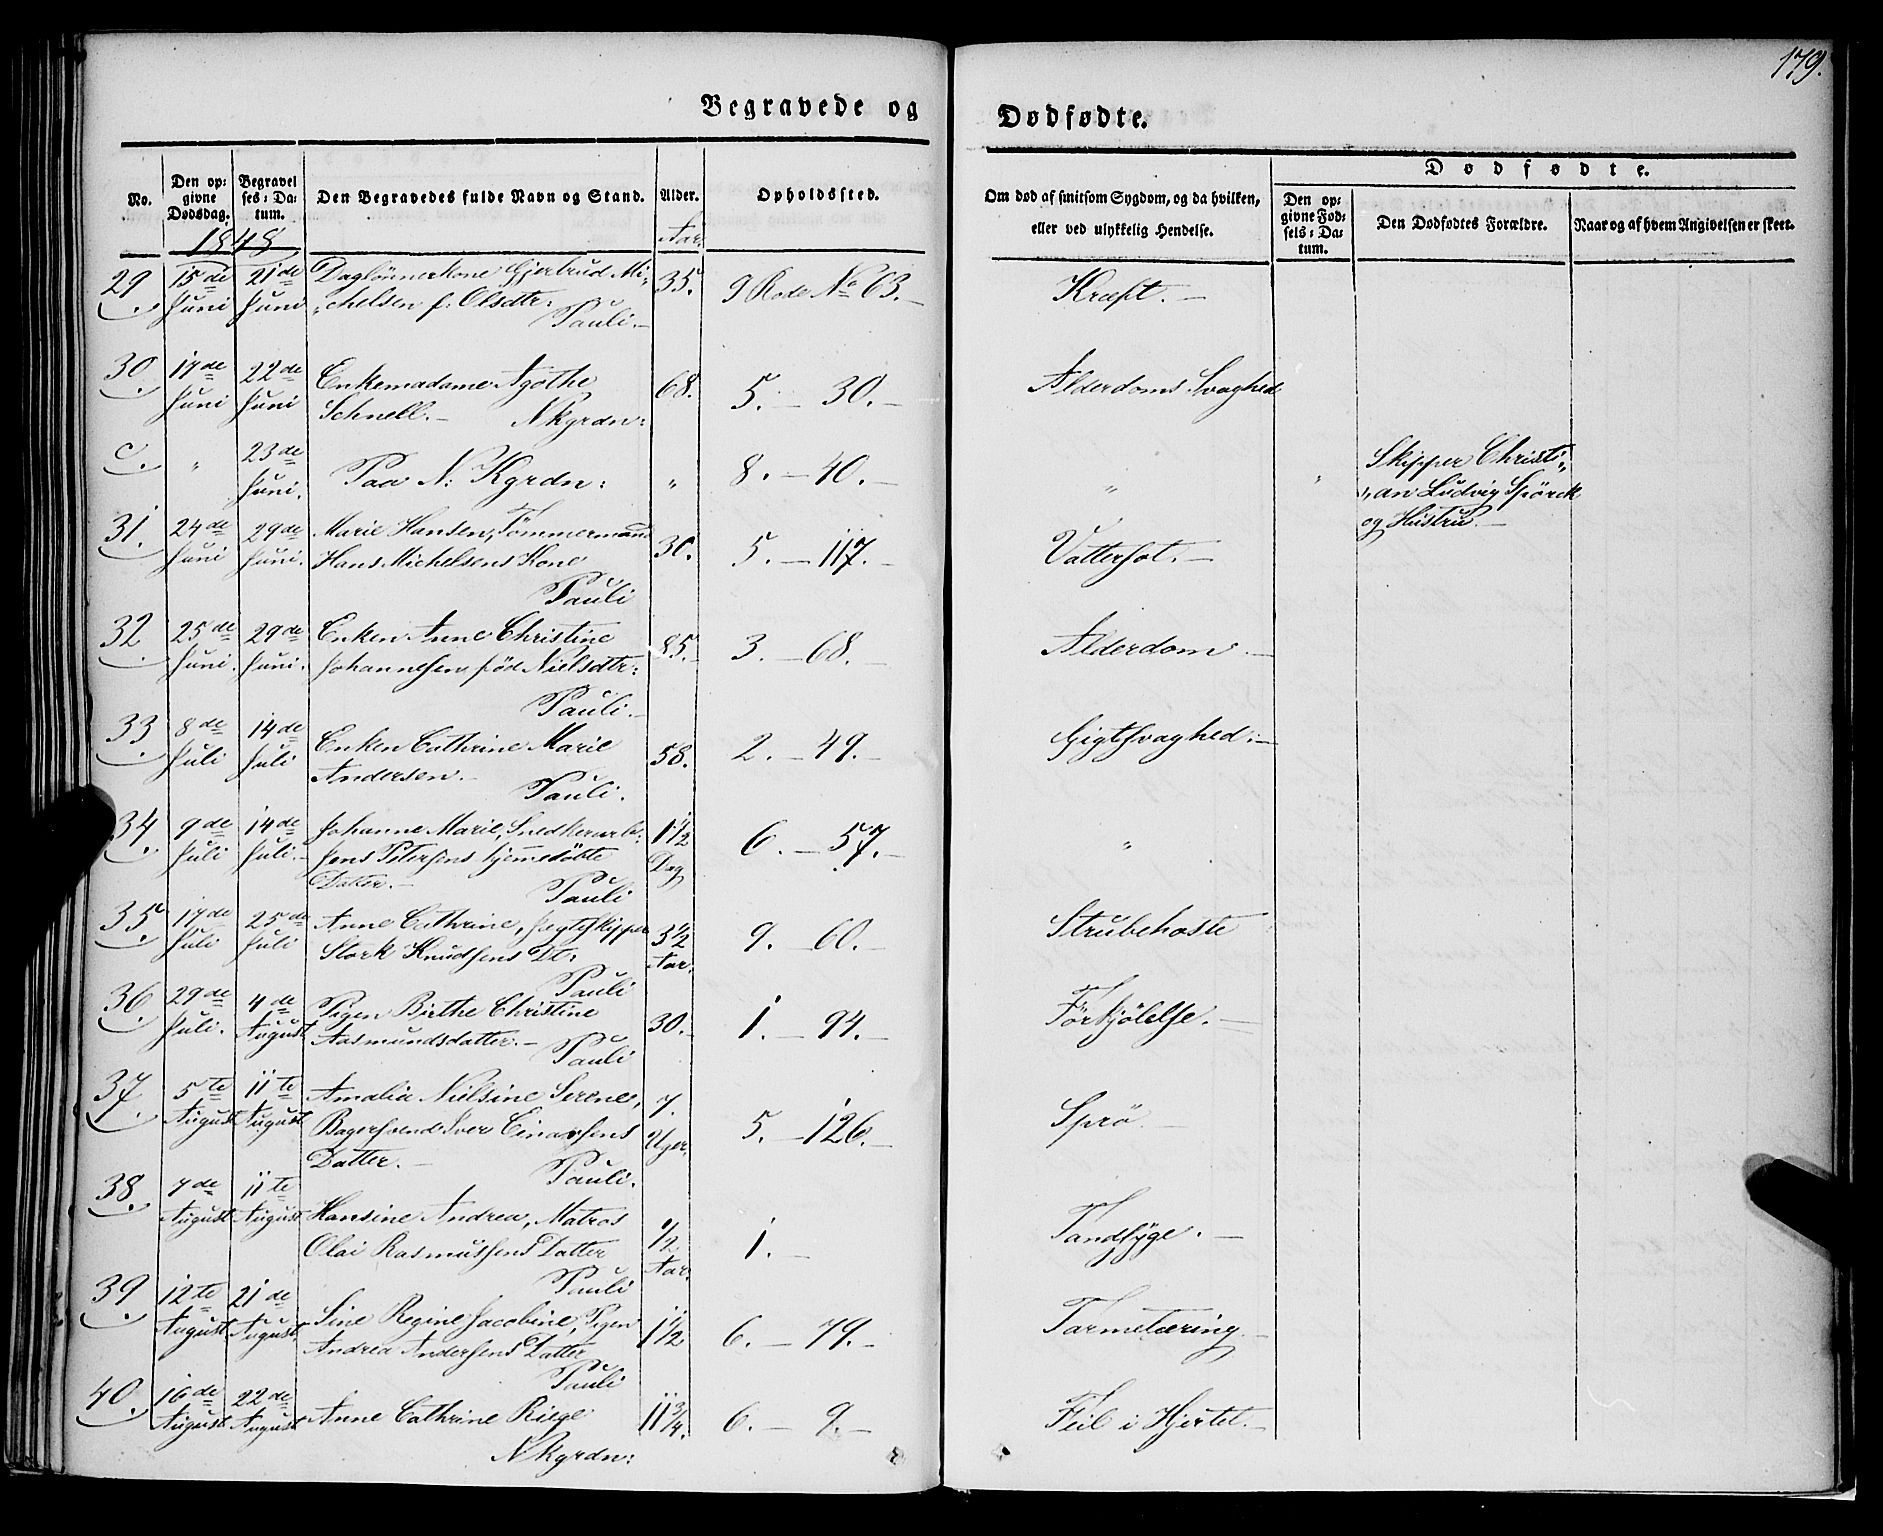 179.
Begravede og Dødfødte.
No.
Den opgivne Dødsdag.
Begravelses-Datum.
Den Begravedes fulde Navn og Stand.
Alder.
Opholdssted.
Om død af smitsom Sygdom, og da hvilken, eller ved ulykkelig Hendelse.
Dødfødte.
Den opgivne Fødsels-Datum.
Den Dødfødtes Forældre.
Naar og af hvem Angivelsen er skeet.
1848
Aar.
29. 15de Juni 21de Juni Daglönnerkone Gjertrud Mi-
chelsen f. Olsdtr: Pauli.- 35. 9 Rode No 63.- Kræft.-
30. 17de Juni 22de Juni Enkemadame Agothe
Schnell.- N Kgrdn: 68. 5.- 30.- Alderdoms Svaghed
c. " 23de Juni. Paa N: Kgrdn: " 8.- 40.- " " Skipper Christi-
an Ludvig Spörck
og Hustru.-
31. 24de Juni 29de Juni. Marie Hansen, Tömmermand
Hans Michelsens Kone
Pauli 30. 5.- 117.- Vattersot.-
32. 25de Juni. 29de Juni. Enken Anne Christine
Johannesen föd Nielsdtr:
Pauli.- 85.- 3.- 68.- Alderdom.-
33. 8de Juli 14de Juli Enken Cathrine Marie
Andersen.-
Pauli. 58. 2.- 49.- Gigtsvaghed.-
34. 9de Juli 14de Juli.- Johanne Marie, Snedkerarbei-
Jens Petersens hjemmedöbte
Datter.- Pauli 1 1/2 Dag 6.- 57.- "
35. 17de Juli 25de Juli Anne Cathrine, Jægtskipper
Stork Knudsens Dt:
Pauli 3 1/2 Aar. 9.- 60.- Strubehoste
36. 29de Juli. 4de August Pigen Birthe Christine
Aasmundsdatter.- Pauli 30.- 1.- 94.- Forkjölelse.-
37. 5te August 11te August Amalia Nielsine Serene,
Bagersvend Iver Einarsens
Datter.- Pauli. 7. Uger. 5.- 126.- Sprö.-
38. 7de August 11te August Hansine Andrea, Matros
Olai Rasmussens Datter
Pauli 1/2 Aar. 1.- Tandsyge.-
39. 12te August 21de August Sine Regine Jacobine, Pigen
Andrea Andersens Datter
Pauli 1 1/2 6.- 79.- Tarmetæring.-
40. 16de August 22de August Anne Cathrine Riege
N Kgrdn: 11 3/4. 6.- 9.- Feil i Hjertet.-